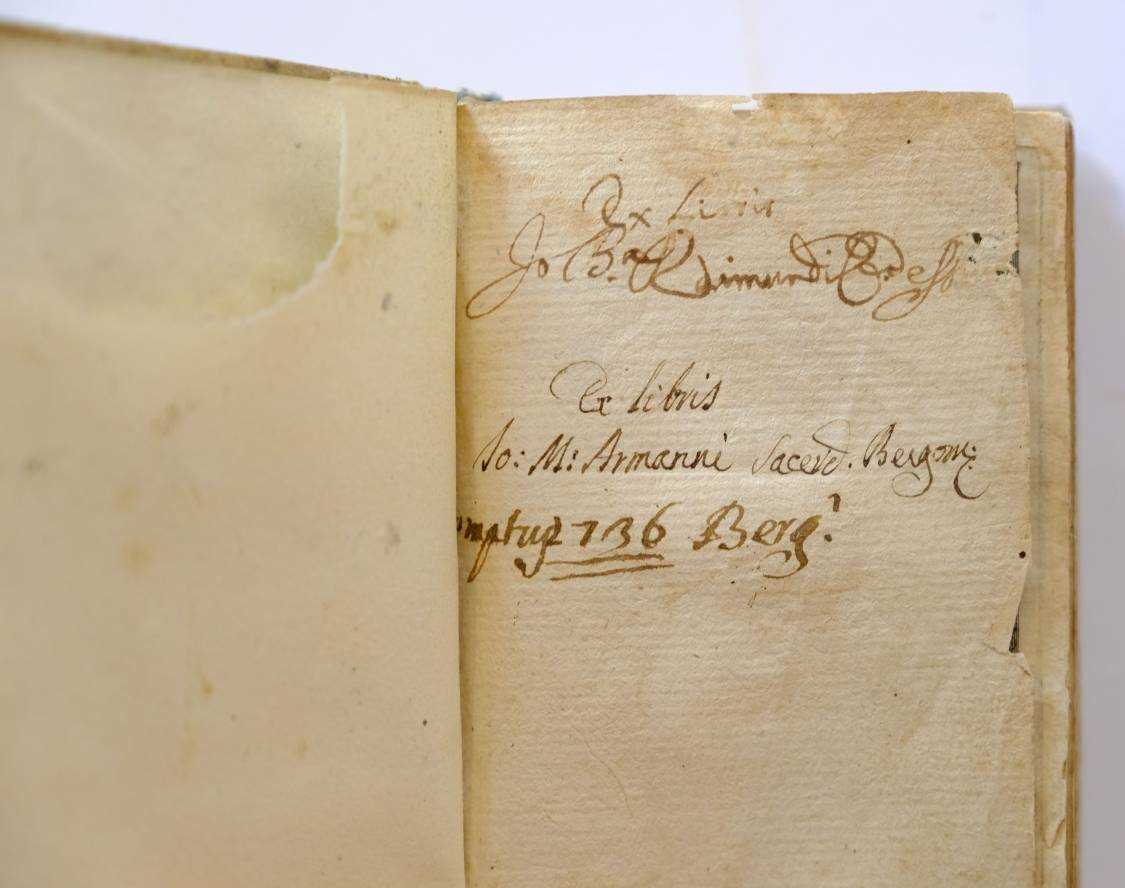 Ex Libris
Jo Ba Raimundi
Ex libris
Jo: M: Armanni Sacerd. Bergom:
736 Berg.